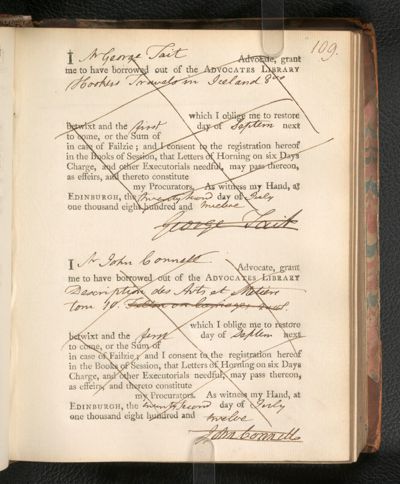 109.
I Mr George Tait Advocate, grant
me to have borrowed out of the ADVOCATES LIBRARY
Hookers Travels in Iceland 8vo
which I oblige me to restore
betwixt and the first day of Septem next
to come, or the Sum of
in case of Failzie; and I consent to the registration hereof
in the Books of Session, that Letters of Horning on six Days
Charge, and other Executorials needful, may pass thereon,
as effeirs, and thereto constitute
my Procurators. As witness my Hand, at
EDINBURGH, the twenty second day of July
one thousand eight hundred and twelve
George Tait
I Mr John Connell Advocate, grant
me to have borrowed out of the ADVOCATES LIBRARY
Description des Arts et Metiers
tom 10.
which I oblige me to restore
betwixt and the first day of Septem next
to come, or the Sum of
in case of Failzie; and I consent to the registration hereof
in the Books of Session, that Letters of Horning on six Days
Charge, and other Executorials needful, may pass thereon,
as effeirs, and thereto constitute
my Procurators. As witness my Hand, at
EDINBURGH, the twenty second day of July
one thousand eight hundred and twelve
John Connell